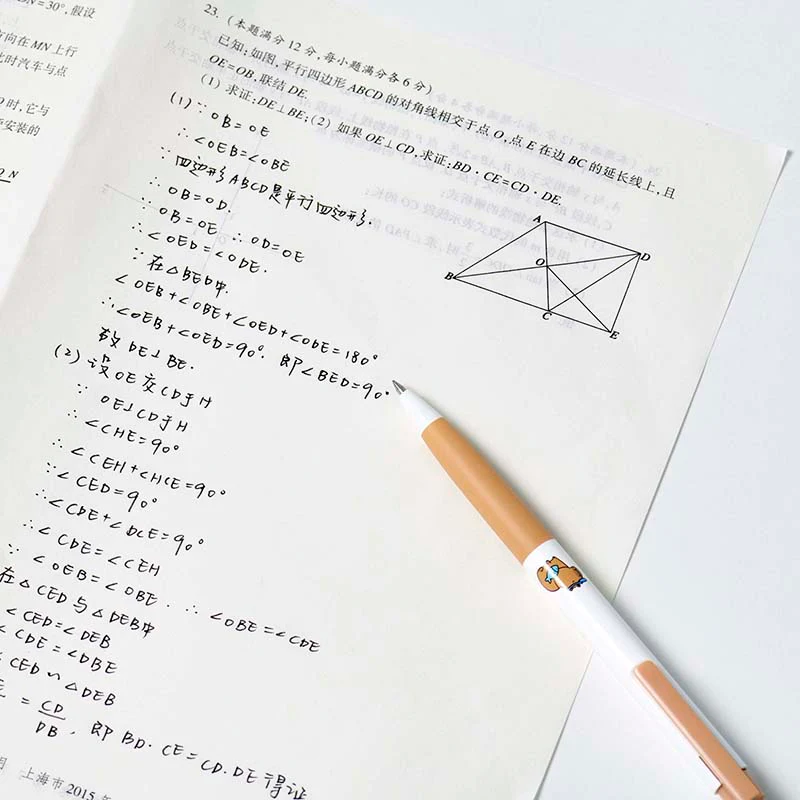 N=30°,假设
方向在MN上行
此时汽车与点
时,它与
安装的
23.(本题满分12分,每小题满分各6分)
已知:如图,平行四边形ABCD的对角线相交于点O,点E在边BC的延长线上,且
OE=OB,联结DE.
(1)求证:DE⊥BE;(2)如果OE⊥CD,求证:BD·CE=CD·DE.
(1)∵OB=OE
∴∠OEB=∠OBE
∵四边形ABCD是平行四边形.
∴OB=OD.
∵OB=OE ∴OD=OE
∴∠OED=∠ODE.
∵在△BED中.
∠OEB+∠OBE+∠OED+∠ODE=180°
∴∠OEB+∠OED=90°. 即∠BED=90°.
故DE⊥BE.
(2)设OE交CD于H
∵OE⊥CD于H
∴∠CHE=90°
∴∠CEH+∠HCE=90°
∵∠CED=90°
∴∠CDE+∠DCE=90°
∴∠CDE=∠CEH
∵∠OEB=∠OBE. ∴∠OBE=∠CDE
在△CED与△DEB中
∠CED=∠DEB
∠CDE=∠DBE
CED∽△DEB
=CD/DB,即BD·CE=CD·DE得证
A
D
O
B
C
E
上海市2015年